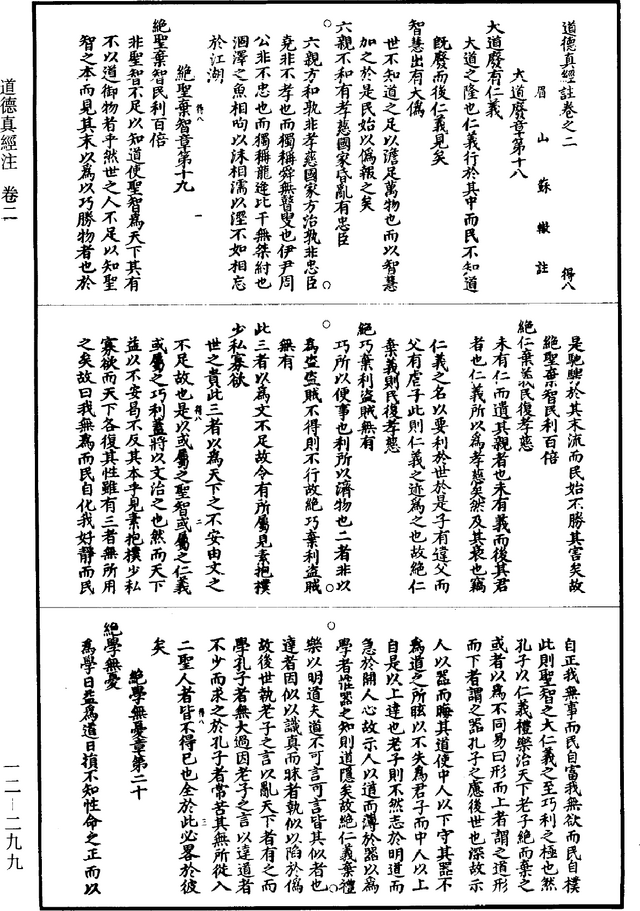 道德真經註卷之二　得八
眉山蘇轍註
大道廢章第十八
大道廢有仁義
大道之隆也仁義行於其中而民不知道
既廢而後仁義見矣
智慧出有大偽
世不知道之足以澹足萬物也而以智慧
加之於是民始以偽報之矣
六親不和有孝慈國家昏亂有忠臣
六親方和孰非孝慈國家方治孰非忠臣
堯非不孝也而獨稱舜無瞽叟也伊尹周
公非不忠也而獨稱龍逄比干無桀紂也
涸澤之魚相呴以沫相濡以溼不如相忘
於江湖
得八　一
絕聖棄智章第十九
絕聖棄智民利百倍
非聖智不足以知道使聖智為天下其有
不以道御物者乎然世之人不足以知聖
智之本而見其末以為以巧勝物者也於
是馳騁於其末流而民始不勝其害矣故
絕聖棄智民利百倍
絕仁棄義民復孝慈
未有仁而遺其親者也未有義而後其君
者也仁義所以為孝慈矣然及其衰也竊
仁義之名以要利於世於是子有違父而
父有虐子此則仁義之迹為之也故絕仁
棄義則民復孝慈
絕巧棄利盜賊無有
巧所以便事也利所以濟物也二者非以
為盜盜賊不得則不行故絕巧棄利盜賊
無有
此三者以為文不足故令有所屬見素抱樸
少私寡欲
世之貴此三者以為天下之不安由文之
得八　二
不足故也是以或屬之聖智或屬之仁義
或屬之巧利蓋將以文治之也然而天下
益以不安曷不反其本乎見素抱樸少私
寡欲而天下各復其性雖有三者無所用
之矣故曰我無為而民自化我好靜而民
自正我無事而民自富我無欲而民自樸
此則聖智之大仁義之至巧利之極也然
孔子以仁義禮樂治天下老子絕而棄之
或者以為不同易曰形而上者謂之道形
而下者謂之器孔子之慮後世也深故示
人以器而晦其道使中人以下守其器不
為道之所眩以不失為君子而中人以上
自是以上達也老子則不然志於明道而
急於開人心故示人以道而薄於器以為
學者惟器之知則道隱矣故絕仁義棄禮
樂以明道夫道不可言可言皆其似者也
達者因似以識真而昧者執似以陷於偽
故後世執老子之言以亂天下者有之而
學孔子者無大過因老子之言以達道者
不少而求之於孔子者常苦其無所從入
得八　三
二聖人者皆不得已也全於此必畧於彼
矣
絕學無憂章第二十
絕學無憂
為學日益為道日損不知性命之正而以
道德真經注　卷二
一二－二九九